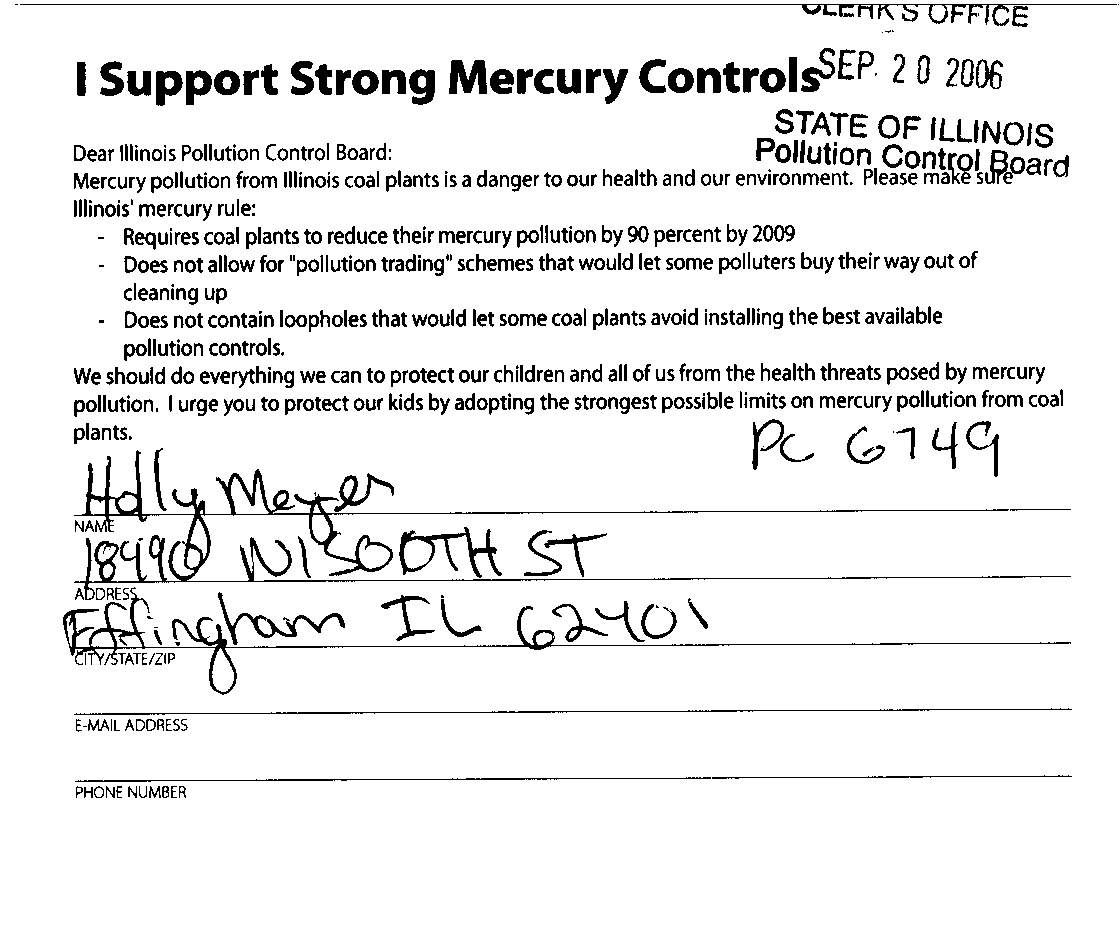 CLERK'S OFFICE
I Support Strong Mercury Controls
SEP. 20 2006
STATE OF ILLINOIS
Pollution Control Board
Dear Illinois Pollution Control Board:
Mercury pollution from Illinois coal plants is a danger to our health and our environment. Please make sure
Illinois' mercury rule:
- Requires coal plants to reduce their mercury pollution by 90 percent by 2009
- Does not allow for "pollution trading" schemes that would let some polluters buy their way out of
cleaning up
- Does not contain loopholes that would let some coal plants avoid installing the best available
pollution controls.
We should do everything we can to protect our children and all of us from the health threats posed by mercury
pollution. I urge you to protect our kids by adopting the strongest possible limits on mercury pollution from coal
plants.
PC 6749
Holly Meyer
NAME
18490 N1500TH ST
ADDRESS
Effingham IL 62401
CITY/STATE/ZIP
E-MAIL ADDRESS
PHONE NUMBER